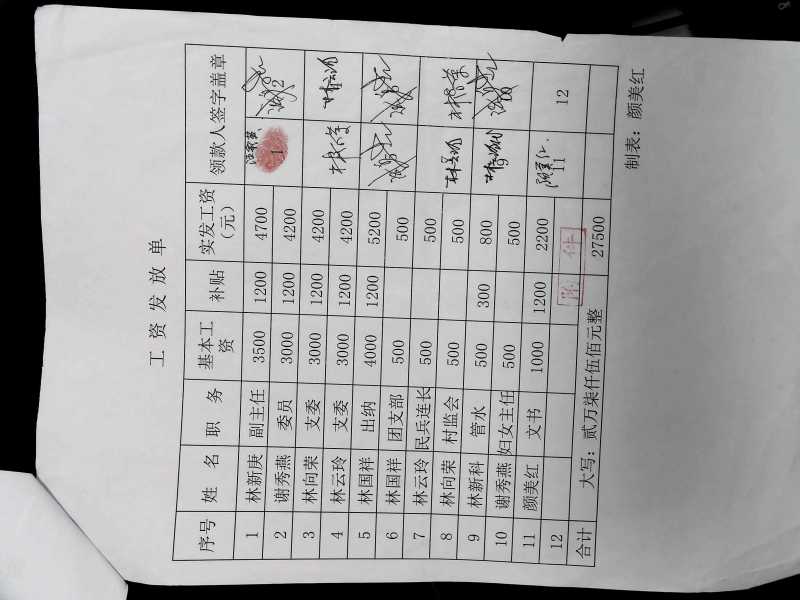 工资发放单
序号 姓名 职务 基本工资 补贴 实发工资（元） 领款人签字盖章
1 林新庚 副主任 3500 1200 4700 1
2 谢秀燕 委员 3000 1200 4200 2
3 林向荣 支委 3000 1200 4200
4 林云玲 支委 3000 1200 4200
5 林国祥 出纳 4000 1200 5200
6 林国祥 团支部 500 500
7 林云玲 民兵连长 500 500
8 林向荣 村监会 500 500
9 林新科 管水 500 300 800 9
10 谢秀燕 妇女主任 500 500 10
11 颜美红 文书 1000 1200 2200 颜美红 11
12 12
附件
合计 大写：贰万柒仟伍佰元整 27500
制表：颜美红